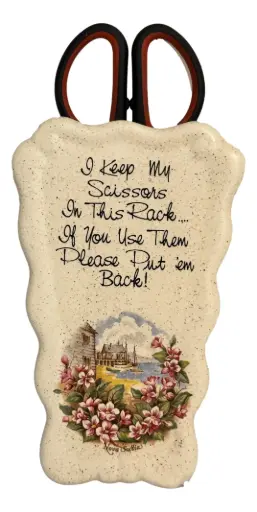 I Keep My
Scissors
In This Rack....
If You Use Them
Please Put 'em
Back!